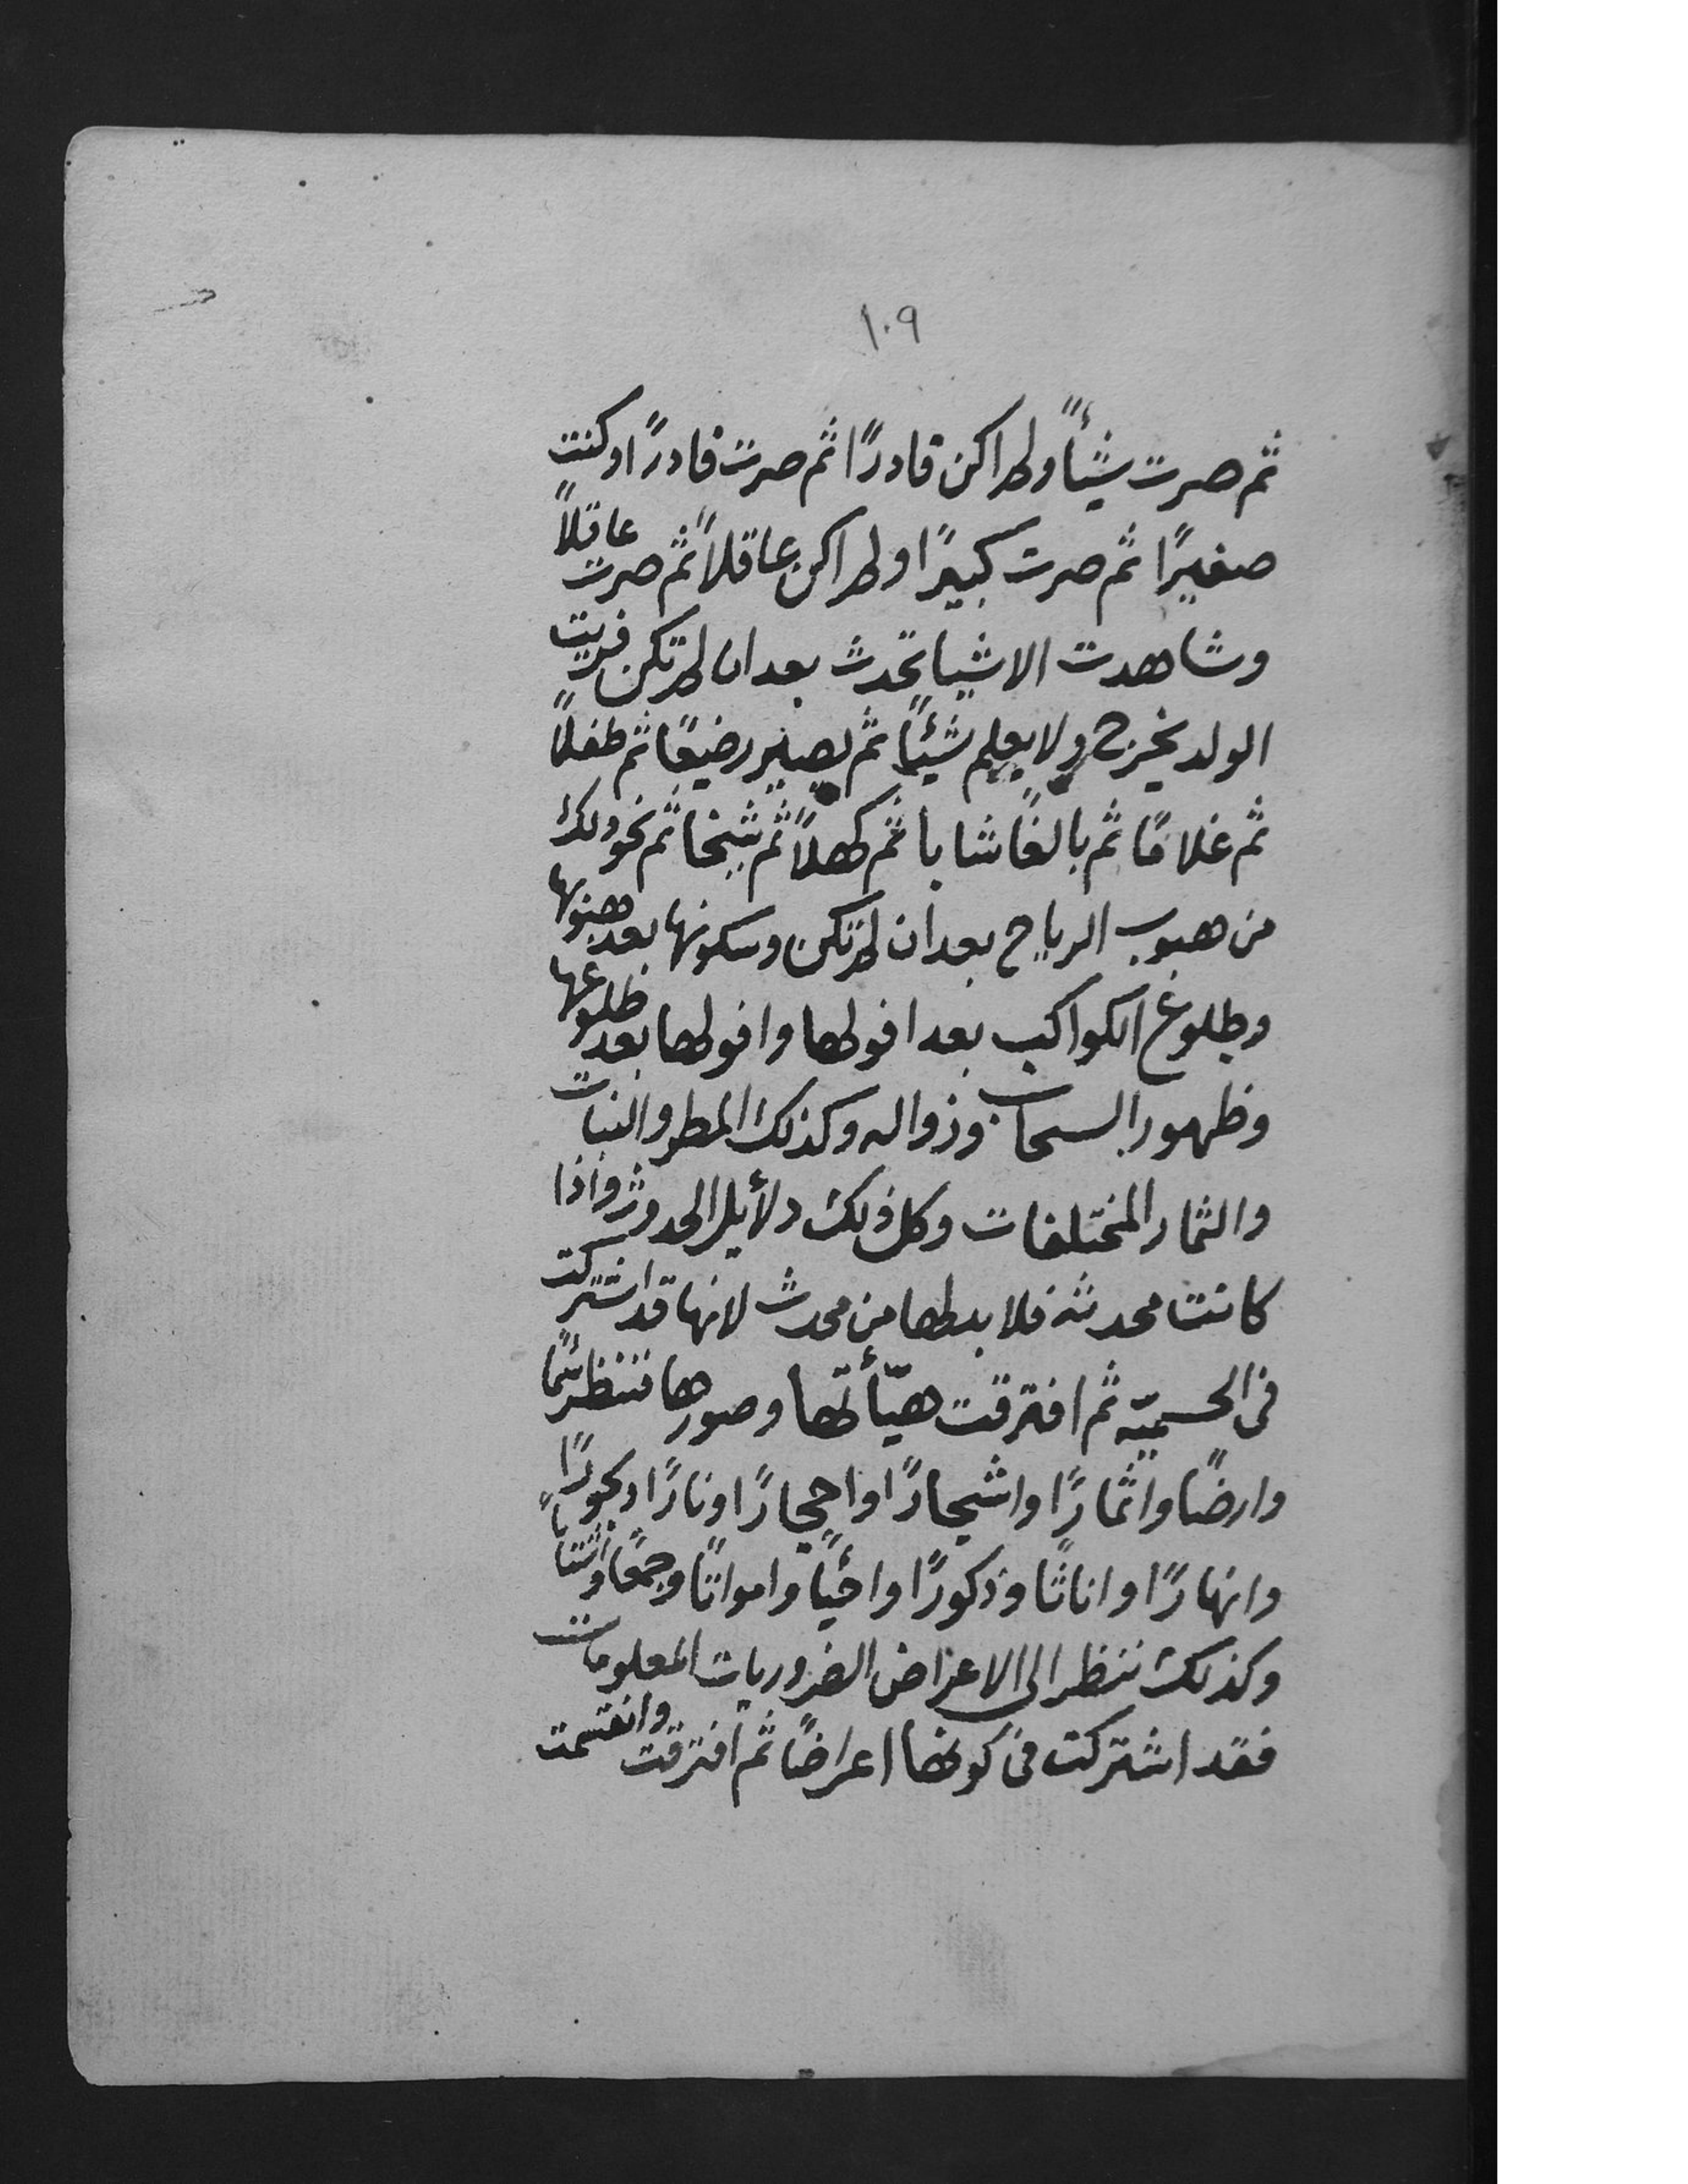 ١٠٩
ثم صرت شيئاً ولم اكن قادرًا ثم صرت قادرًا وكنت
صغيرًا ثم صرت كبيرًا ولم اكن عاقلاً ثم صرت عاقلاً
وشاهدت الاشيا تحدث بعد ان لم تكن فريت
الولد يخرج ولا يعلم شيئًا ثم يصير رضيعًا ثم طفلاً
ثم غلامًا ثم بالغًا شابا ثم كهلاً ثم شيخا ثم نحو ذلك
من هبوب الرياح بعد ان لم تكن وسكونها بعد هبوبها
وطلوع الكواكب بعد افولها وافولها بعد طلوعها
وظهور السحاب وزواله وكذلك المطر والنبات
والثمار المختلفات وكل ذلك دلأيل الحدوث واذا
كانت محدثه فلا بد لها من محدث لانها قد اشتركت
في الجسميّه ثم افترقت هيّأتها وصورها فتنظر سمًا
وارضًا واثمارًا واشجارًا واحجارًا ونارًا وبحورًا
وانهارًا واناثًا وذكورًا واحيأً وامواتًا وجمعًا واشتاتاً
وكذلك ننظر الى الاعراض الضروريات المعلومات
فقد اشتركت في كونها اعراضًا ثم افترقت وانقسمت